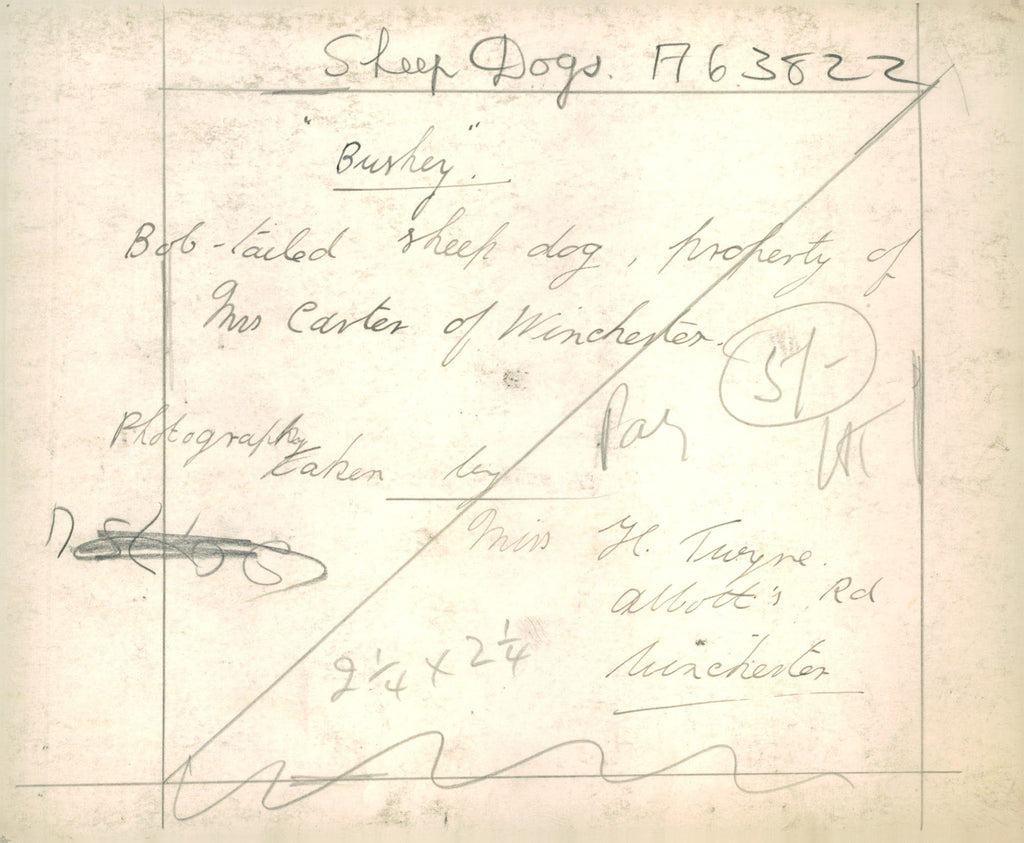 Sheep Dogs. A63822
"Bushey".
Bob-tailed sheep dog, property of
Mrs Carter of Winchester.
5/-
Pay
Photography
taken by
Miss H. Twyne.
Abbott's Rd
Winchester
2 1/4 x 2 1/4